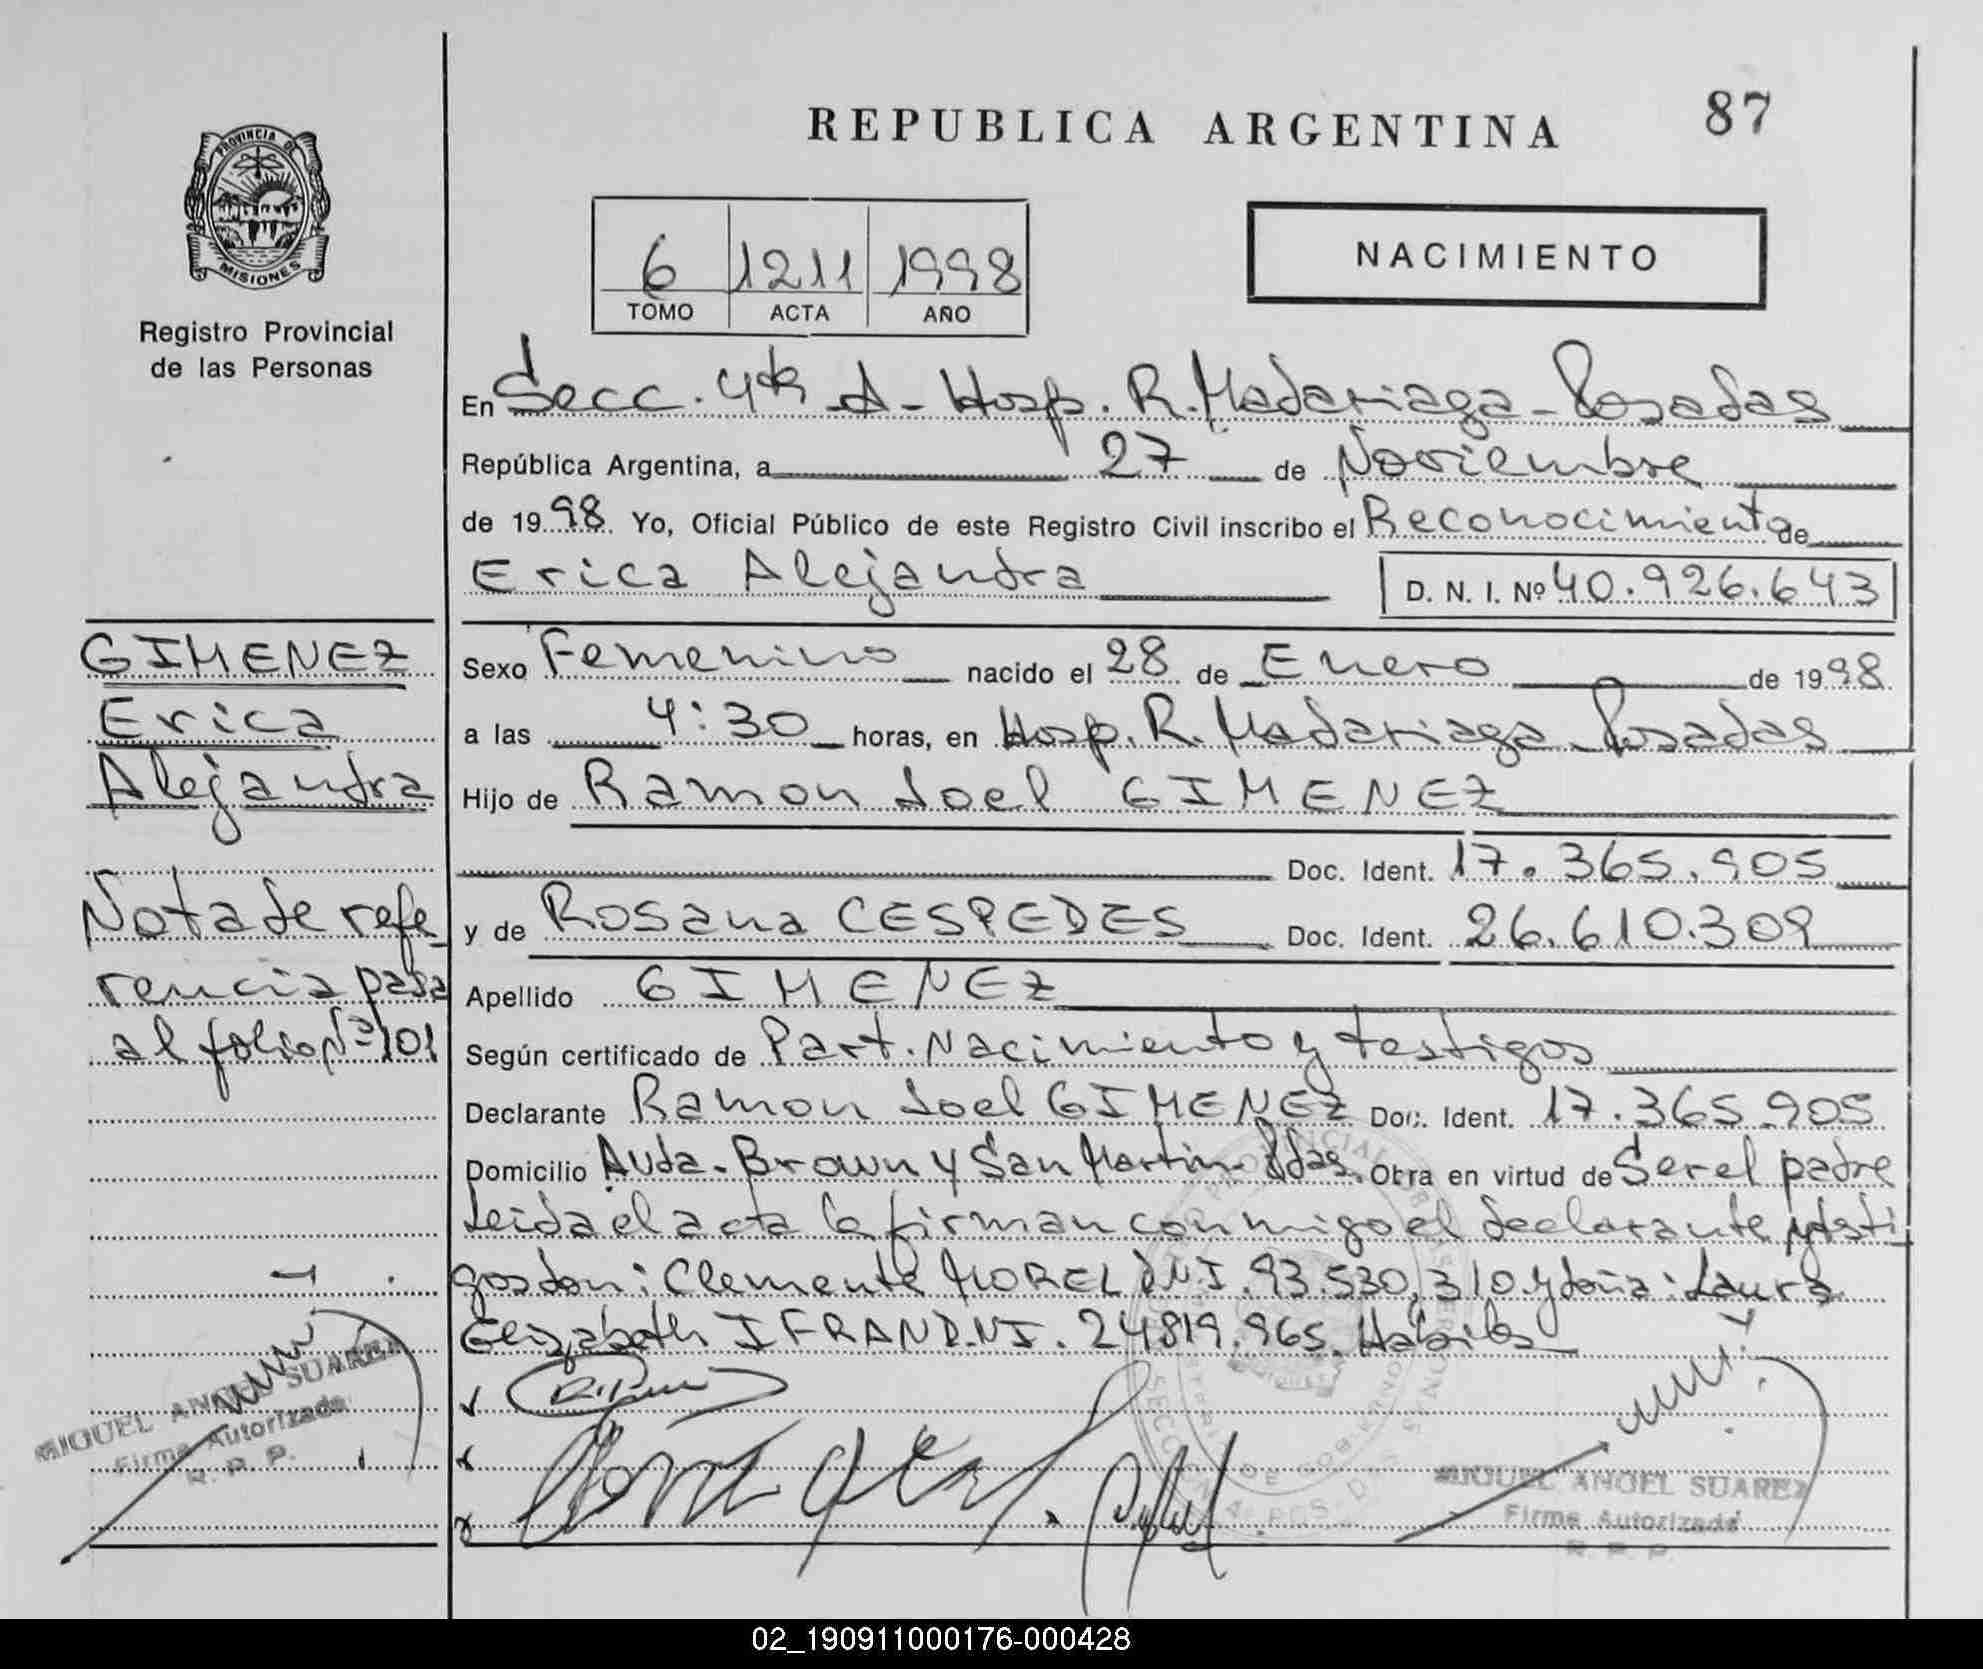 REPUBLICA ARGENTINA
87
PROVINCIA DE
MISIONES
Registro Provincial
de las Personas
6 1211 1998
TOMO ACTA AÑO
NACIMIENTO
En Secc. 4ta A - Hosp. R. Madariaga - Posadas
República Argentina, a 27 de Noviembre
de 1998. Yo, Oficial Público de este Registro Civil inscribo el Reconocimiento de
Erica Alejandra D. N. I. Nº 40.926.643
Sexo Femenino nacido el 28 de Enero de 1998.
a las 4:30 horas, en Hosp. R. Madariaga - Posadas
Hijo de Ramon Joel GIMENEZ
Doc. Ident. 17.365.905
y de Rosana CESPEDES Doc. Ident. 26.610.309
Apellido GIMENEZ
Según certificado de Part. Nacimiento y testigos
Declarante Ramon Joel GIMENEZ Doc. Ident. 17.365.905
Domicilio Avda. Brown y San Martin - Pdas. Obra en virtud de Ser el padre
Leida el acta la firman conmigo el declarante y testi
gos don: Clemente MOREL D.N.I. 93.530.310 y doña: Laura
Elizabeth IFRAN D.N.I. 24819.965. Habiles
MIGUEL ANGEL SUAREZ
Firma Autorizada
R. P. P.
GIMENEZ
Erica
Alejandra
Nota de refe
rencia pasa
al folio Nº 101
MIGUEL ANGEL SUAREZ
Firma Autorizada
R. P. P.
02_190911000176-000428